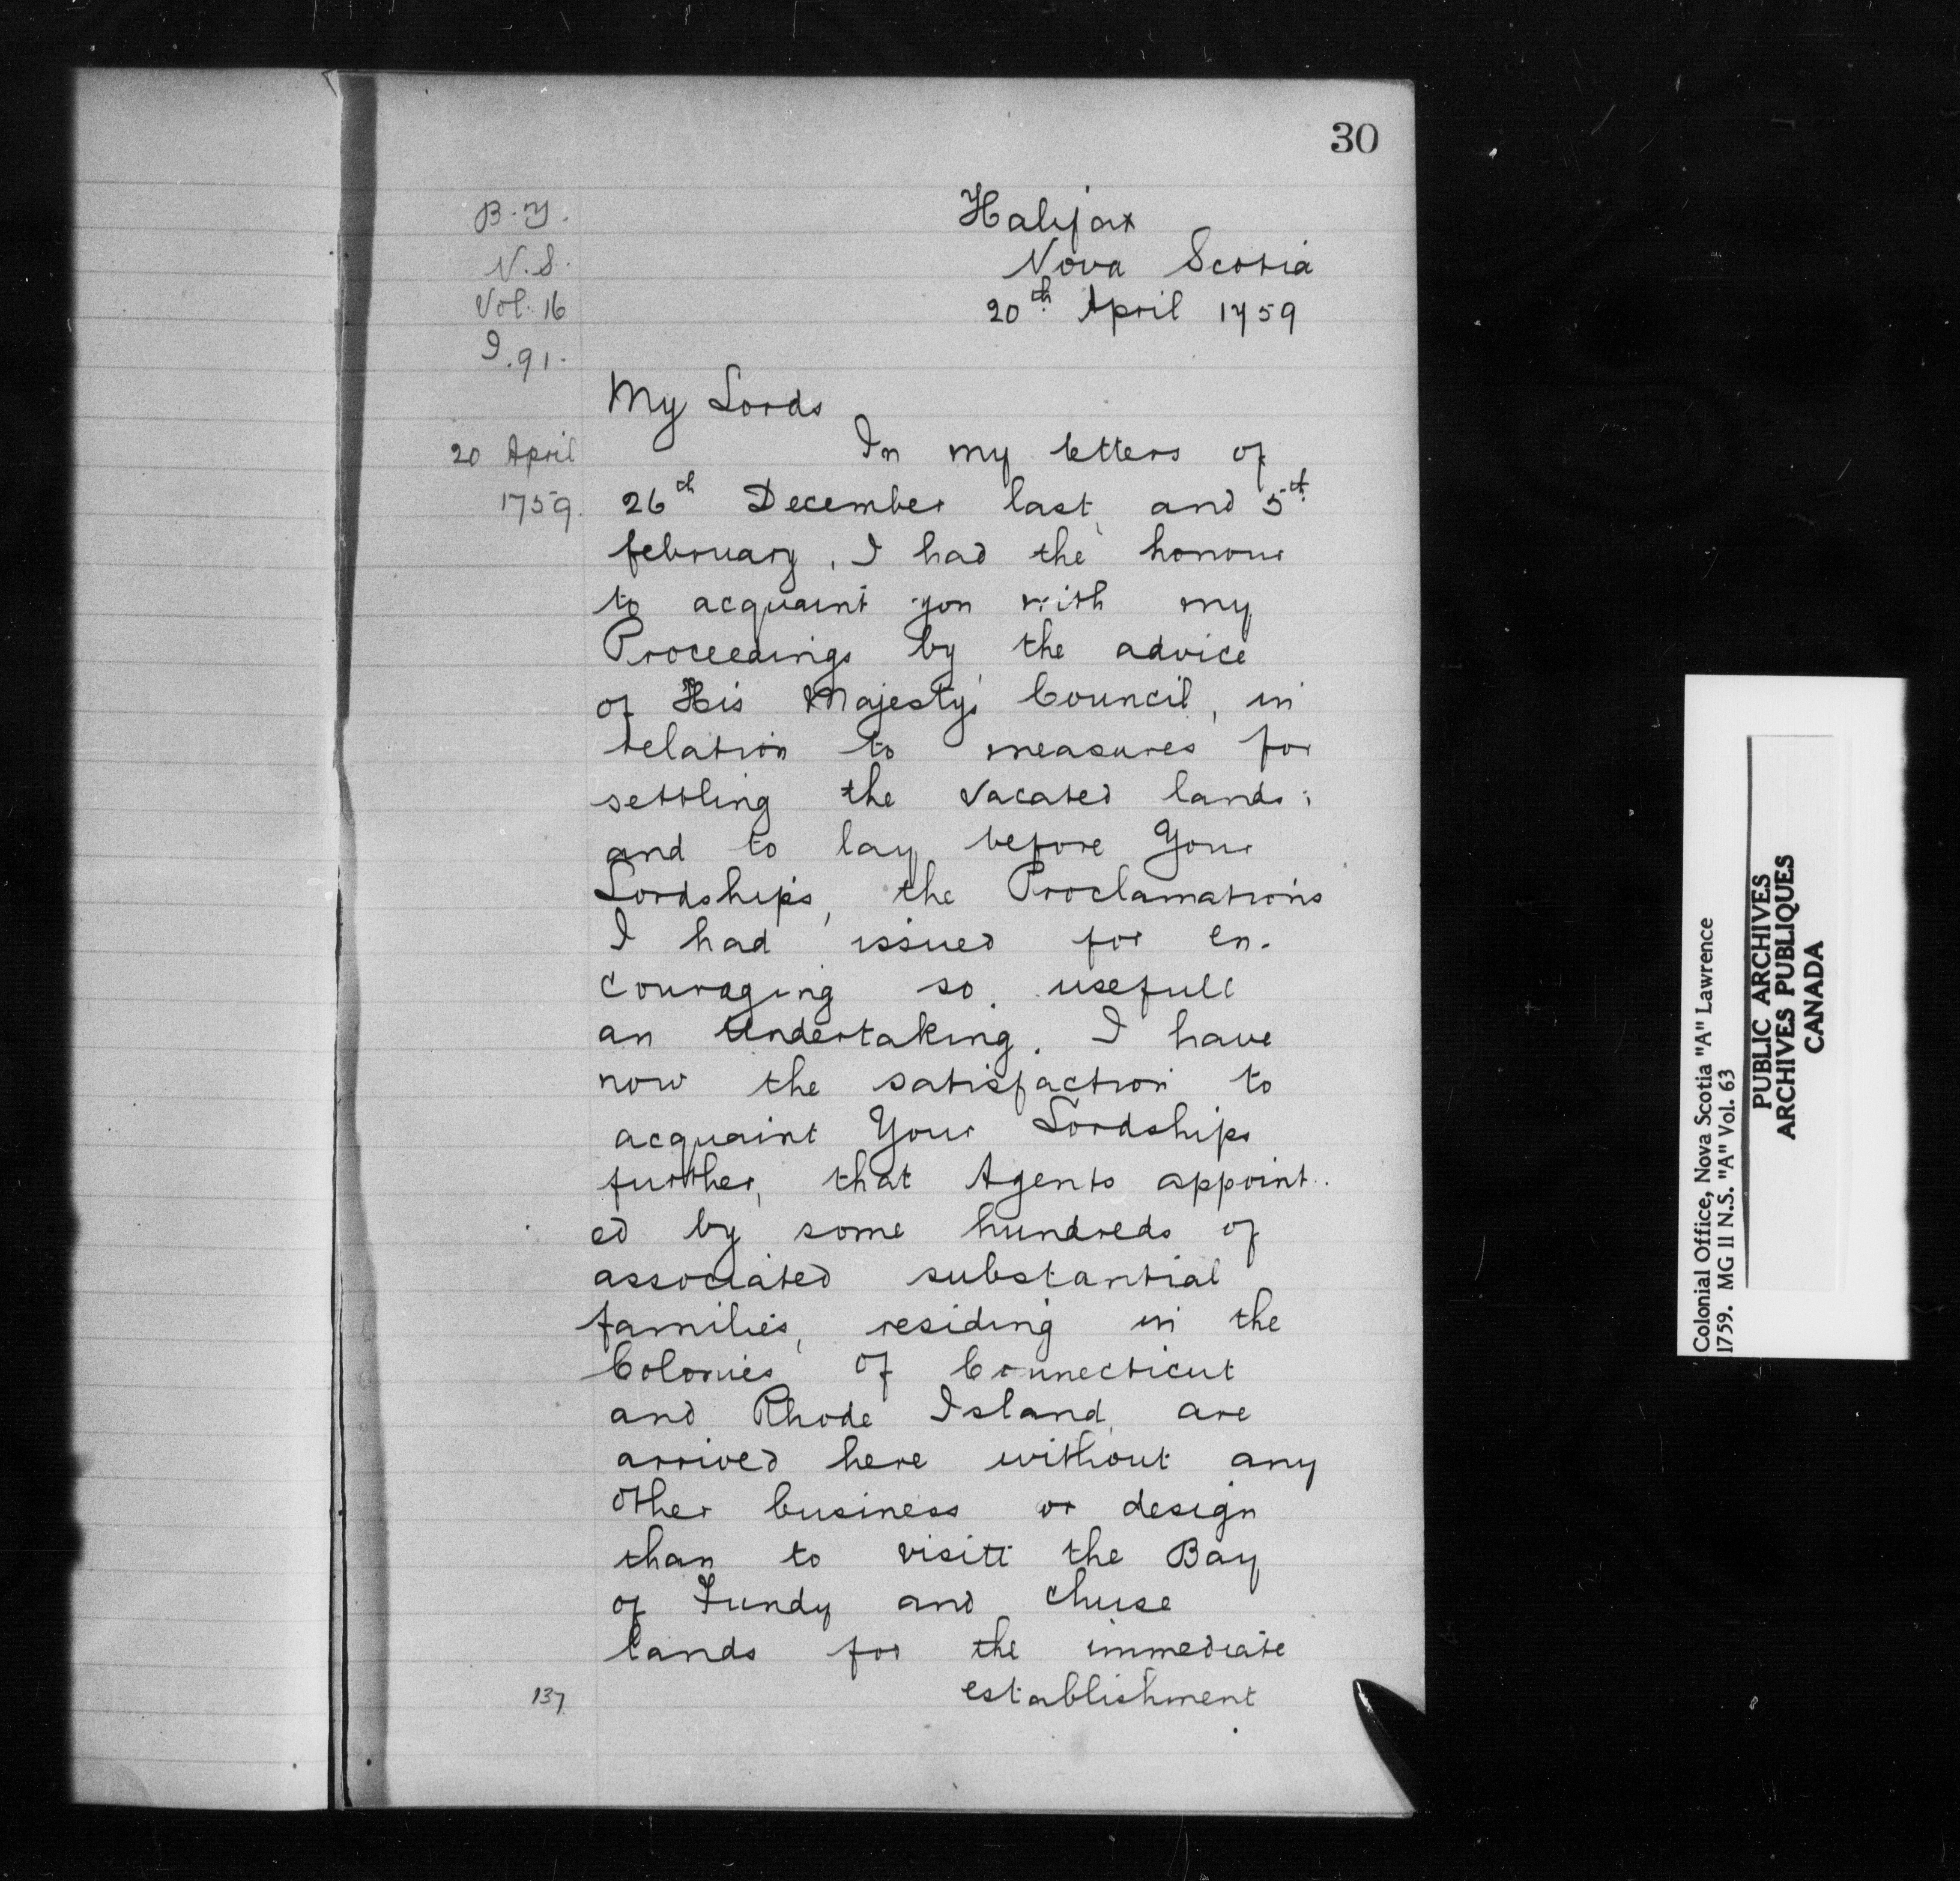 30
B.T.
N.S.
Vol. 16
I.91.
Halifax
Nova Scotia
20th April 1759
My Lords
20 April
1759.
In my letters of
26th December last, and 5th
february, I had the honour
to acquaint you with my
Proceedings by the advice
of His Majestys Council, in
relation to measures for
settling the vacated lands;
and to lay before Your
Lordships, the Proclamations
I had issued for en-
couraging so usefull
an Undertaking. I have
now the satisfaction to
acquaint Your Lordships
further, that Agents appoint-
ed by some hundreds of
associated substantial
families, residing in the
Colonies of Connecticut
and Rhode Island, are
arrived here without any
other business or design
than to visitt the Bay
of Fundy and chuse
lands for the immediate
establishment
137
Colonial Office, Nova Scotia "A" Lawrence
1759. MG 11 N.S. "A" Vol. 63
PUBLIC ARCHIVES
ARCHIVES PUBLIQUES
CANADA